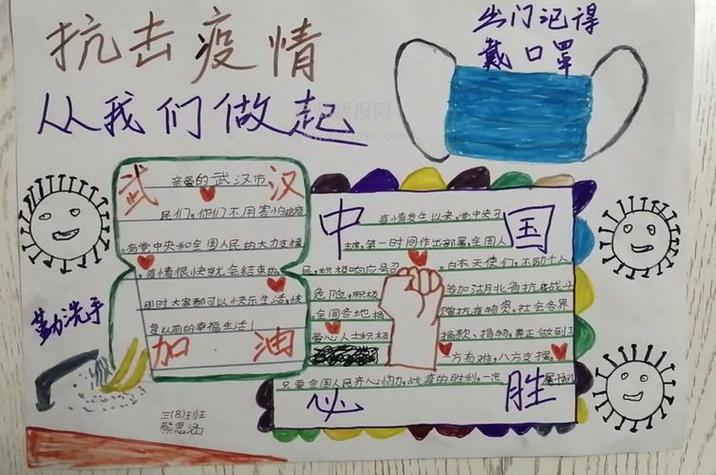 抗击疫情
从我们做起
出门记得
戴口罩
武汉
亲爱的武汉市
民们,你们不用害怕
,有党中央和全国人民的大力支援
,疫情很快就会结束的
即时大家都可以快乐生活,恢
复以前的幸福生活!
加油
勤洗手
三(8)班
熊思涵
中国
疫情发生以来,党中央
主席,第一时间作出部署,全国人
民,积极响应号召,白衣天使们,不
危险,积极参加湖北省抗疫战斗
,全国各地捐赠抗疫物资,社会各界
爱心人士积极捐款、捐物,真正做到了
一方有难,八方支援。
只要全国人民齐心协力,战疫的胜利,一定属于
必胜